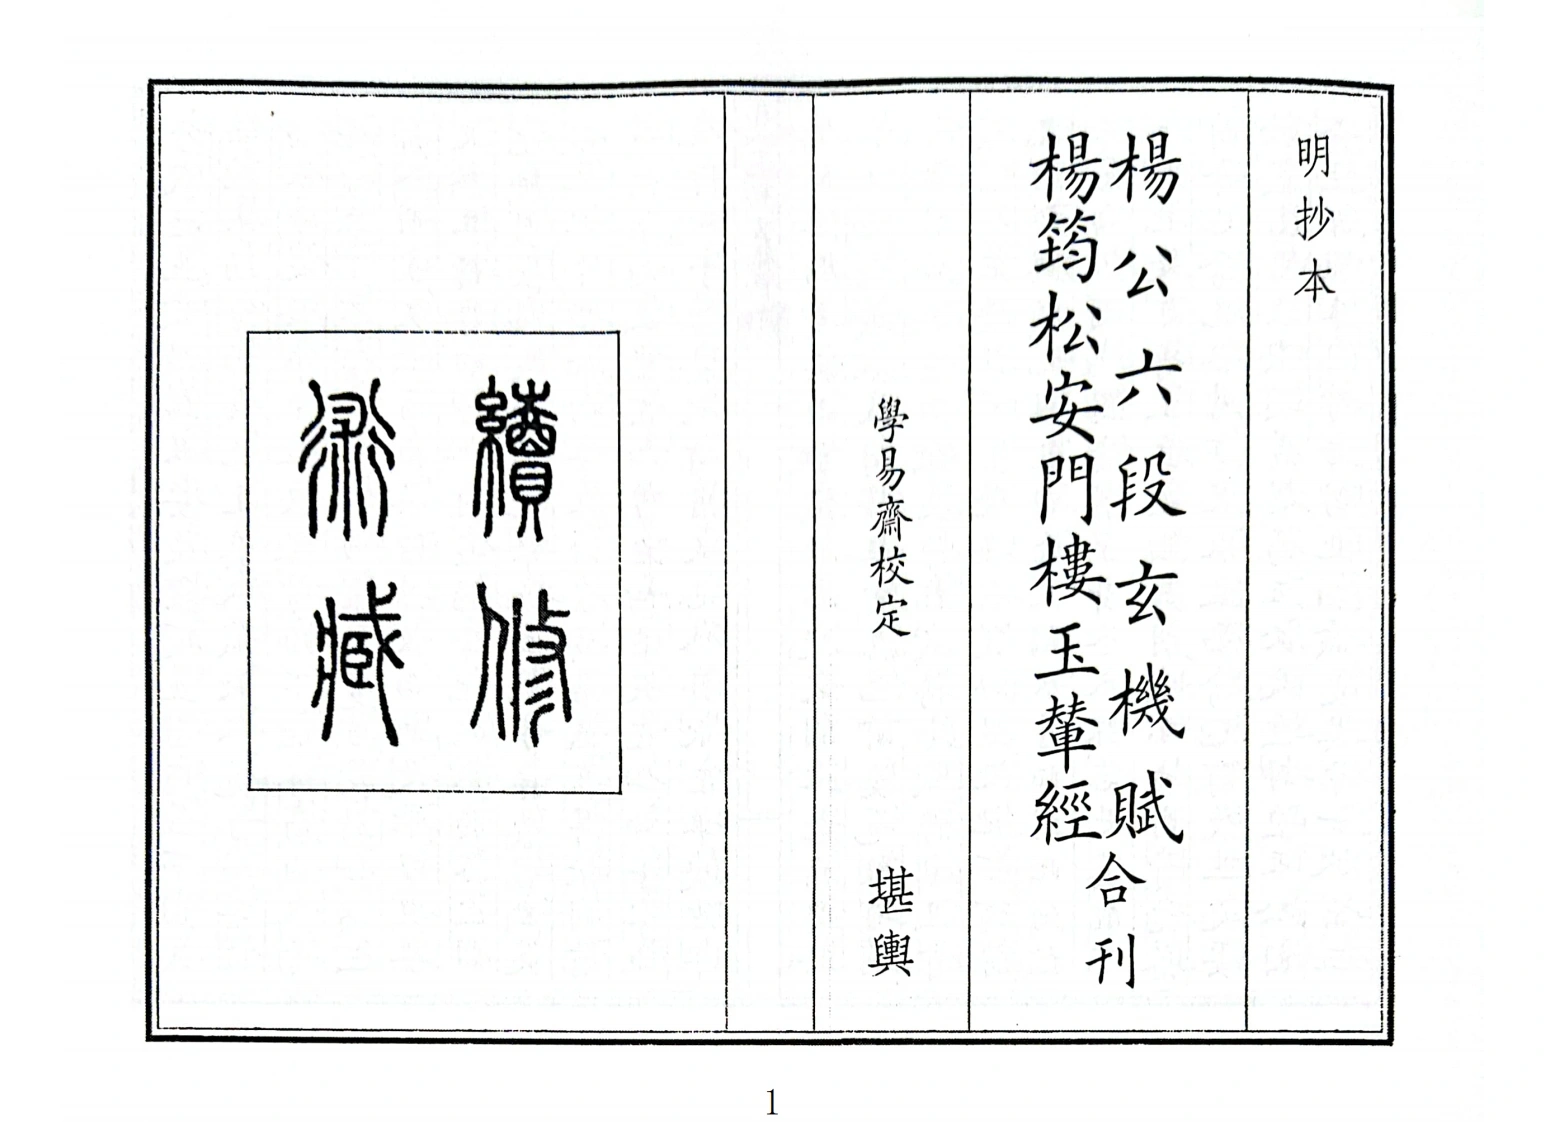 明抄本
楊公六段玄機賦
楊筠松安門樓玉輦經
合刊
學易齋校定
堪輿
續修
術藏
1